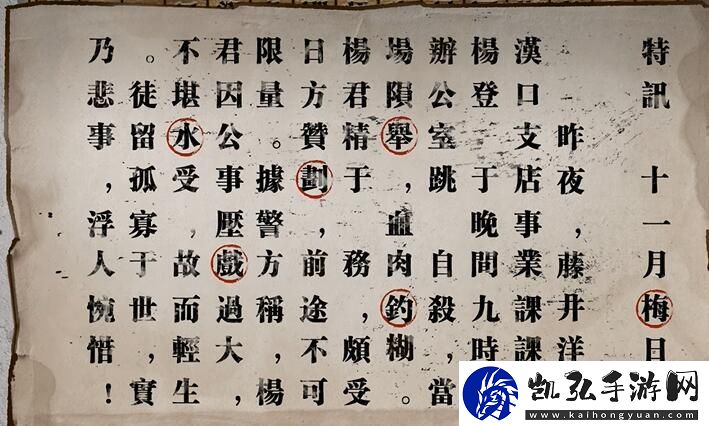 特訊 十一月梅日
昨夜，藤井洋
漢口支店事業課課
楊登 于晚間九時
辦公室跳 自殺，當
場隕舉，血肉釣糊。
楊君精于 務，頗受
日方贊劃，前途，不可
限量。據警方稱，楊
君因公事壓戲過大，
不堪水受，故而輕生
。徒留孤寡于世，實
乃悲事，浮人惋惜！
凱弘手游网
www.kaihongyuan.com